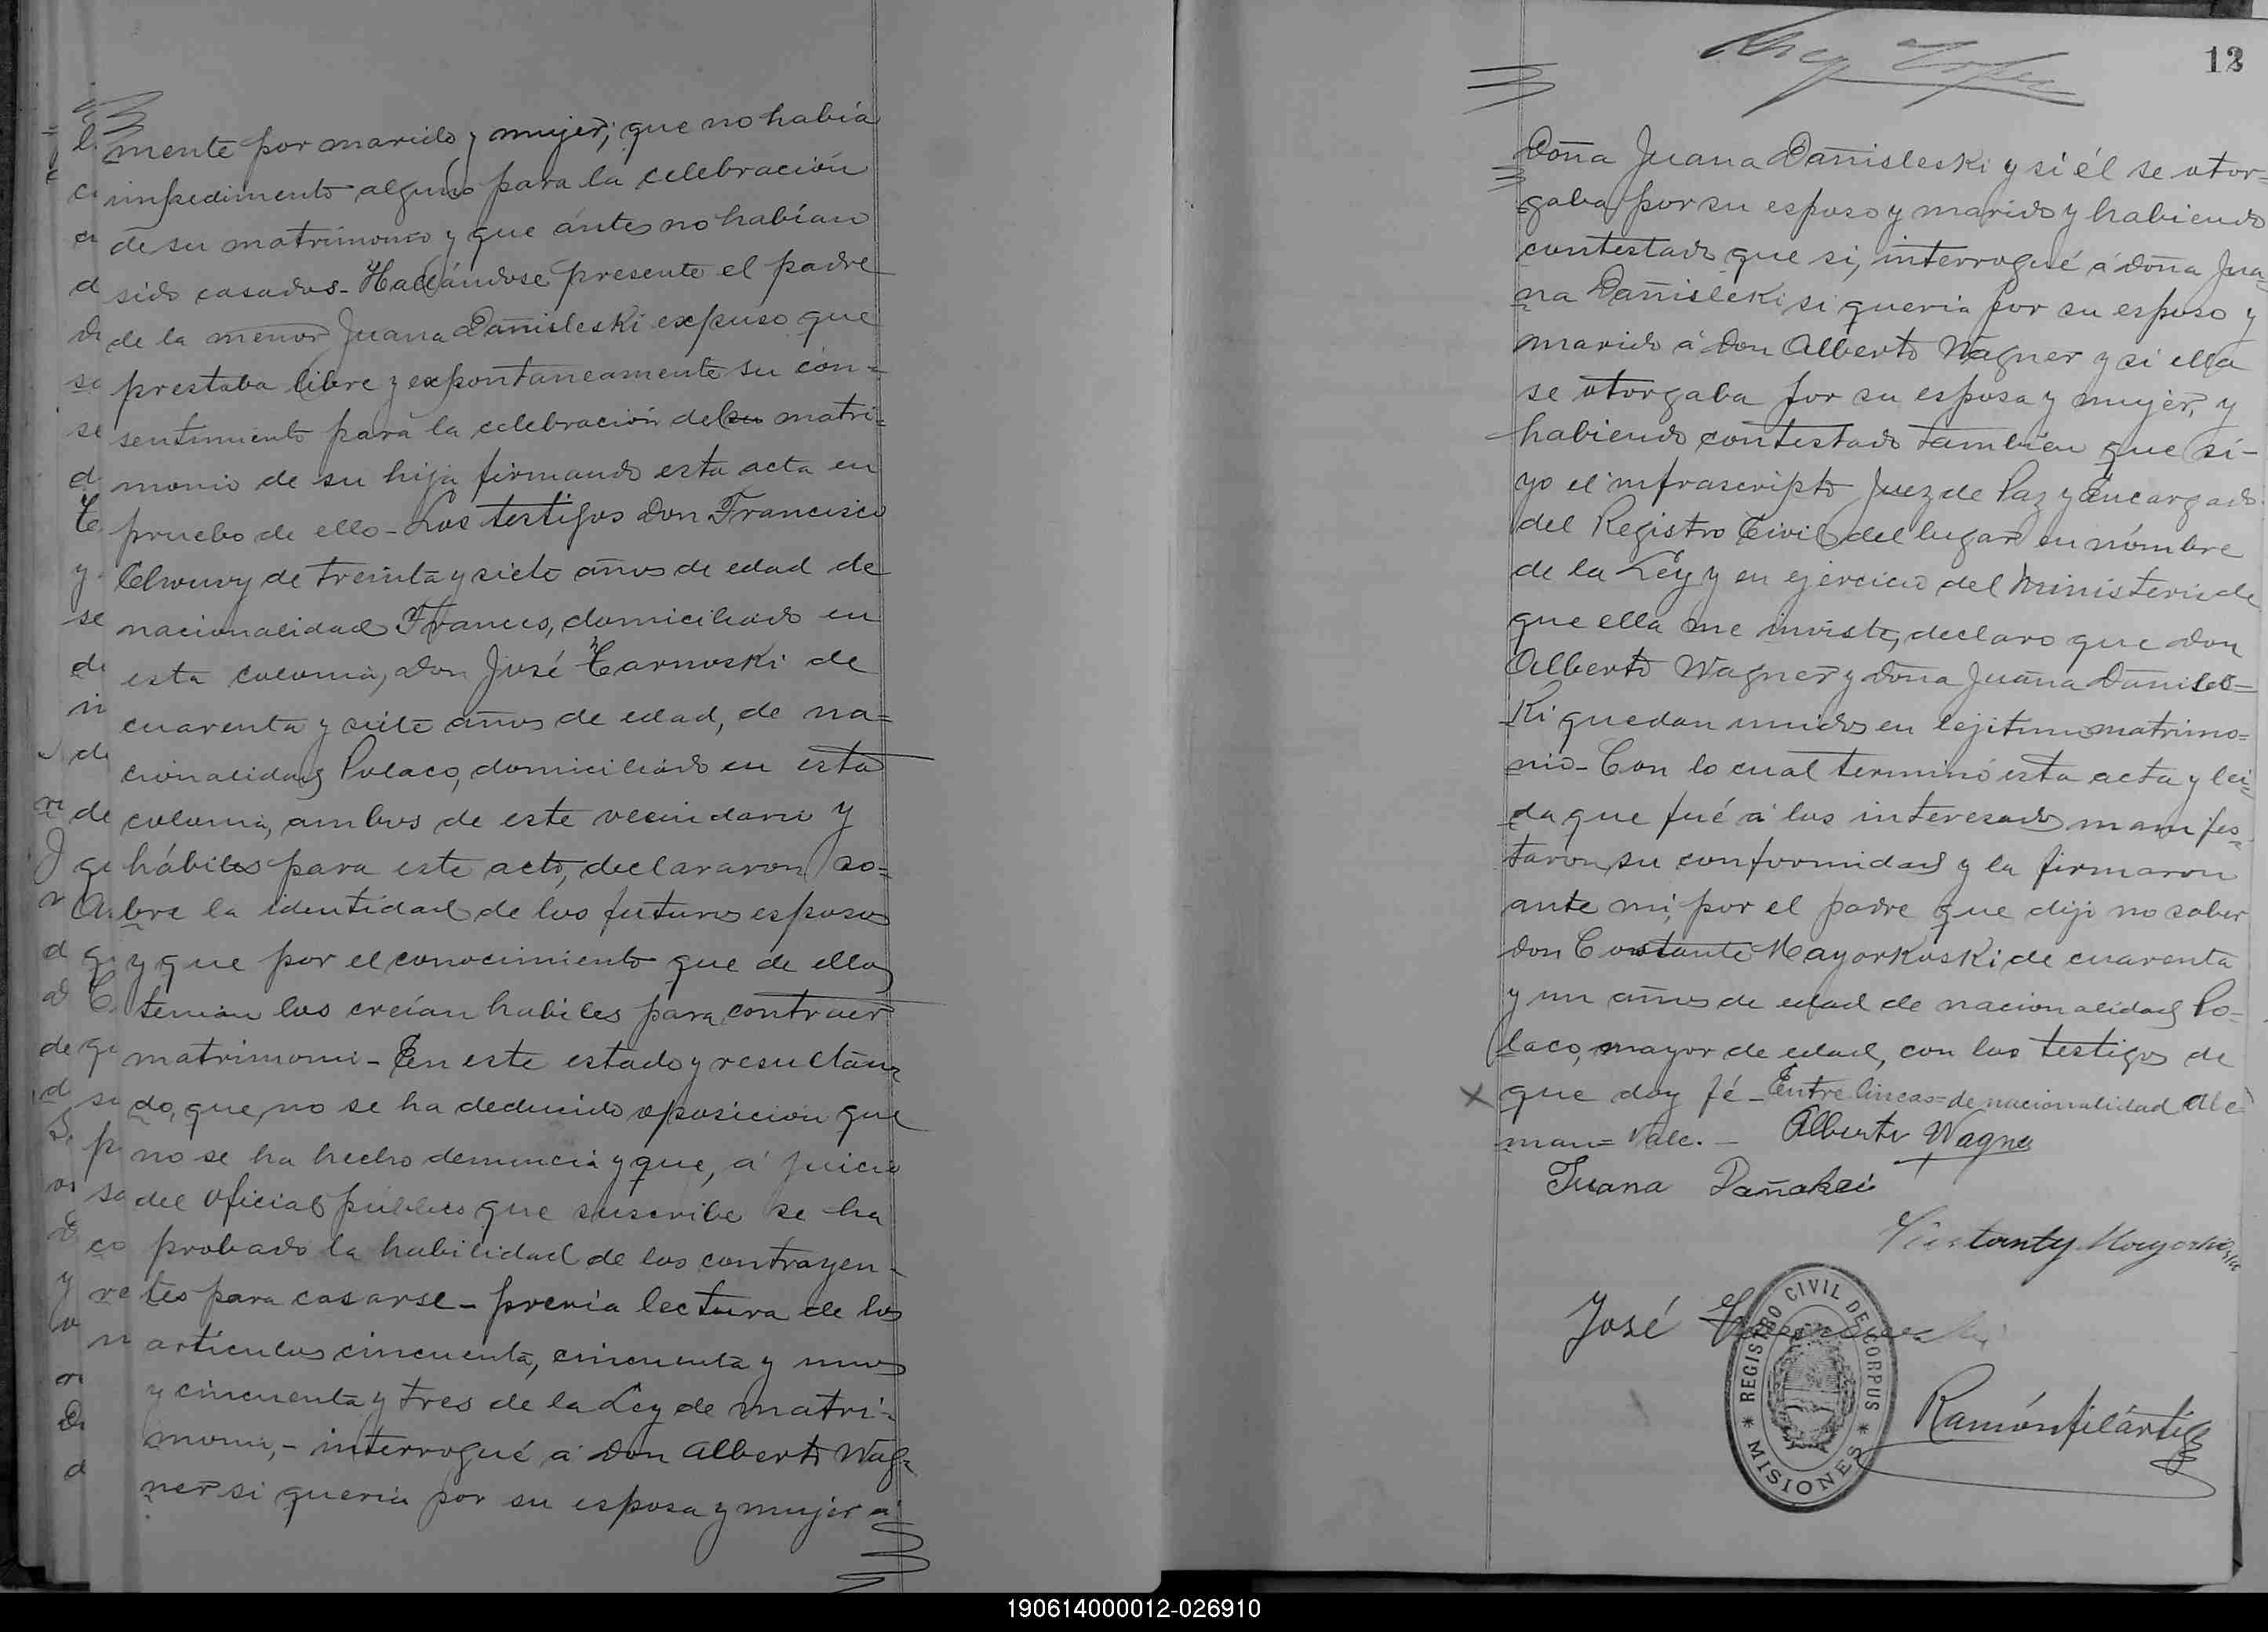 mente por marido y mujer; que no había
impedimento alguno para la celebración
de su matrimonio y que ántes no habían
sido casados - Hallándose presente el padre
de la menor Juana Dañisleski expuso que
prestaba libre y expontaneamente su con=
sentimiento para la celebración del su matri=
monio de su hija firmando esta acta en
pruebo de ello - Los testigos Don Francisco
de treinta y siete años de edad de
nacionalidad Frances, domiciliado en
esta colonia, Don José Tarnoski de
cuarenta y siete años de edad, de na=
cionalidad Polaco, domiciliado en esta
colonia, ambos de este vecindario y
hábiles para este acto, declararon so=
bre la identidad de los futuros esposos
y que por el conocimiento que de ellos
tenian los creían habiles para contraer
matrimonio - En este estado y resultan=
do, que no se ha deducido oposición que
no se ha hecho denuncia y que, á juicio
del oficial público que suscribe se ha
probado la habilidad de los contrayen-
tes para casarse - previa lectura de los
artículos cincuenta, cincuenta y uno
y cincuenta y tres de la Ley de matri-
monio, - interrogué á Don Alberto Wag=
ner si queria por su esposa y mujer á
12
Doña Juana Dañisleski y si él se otor=
gaba por su esposo y marido y habiendo
contestado que si, interrogué á doña Jua=
na Dañisleki si queria por su esposo y
marido á Don Alberto Wagner y si ella
se otorgaba por su esposa y mujer, y
habiendo contestado también que sí -
yo el infrascripto Juez de Paz y Encargado
del Registro Civil del lugar en nómbre
de la Ley y en ejercicio del Ministerio de
que ella me inviste, declaro que Don
Alberto Wagner y Doña Juana Danisles=
Ki quedan unidos en lejitimo matrimo=
nio - Con lo cual terminó esta acta y lei=
da que fué á los interesados manifes=
taron su conformidad y la firmaron
ante mi, por el padre que dijo no saber
Don Costante Mayorkoski de cuarenta
y un años de edad de nacionalidad Po=
laco, mayor de edad, con los testigos de
que doy fé - Entre lineas = de nacionalidad Ale=
man = Vale. - Alberto Wagner
Juana Dañakei
José
REGISTRO CIVIL DE CORPUS
* MISIONES *
Ramón
190614000012-026910